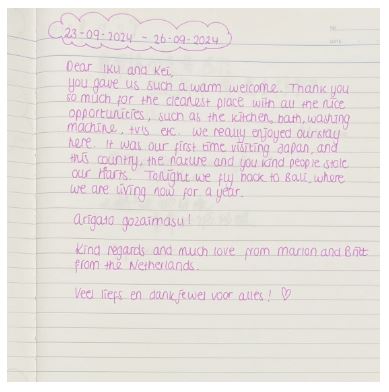 23-09-2024 - 26-09-2024
Dear Iku and Kei,
you gave us such a warm welcome. Thank you
so much for the cleanest place with all the nice
opportunities, such as the kitchen, bath, washing
machine, tvis etc. We really enjoyed our stay
here. It was our first time visiting Japan, and
this country, the nature and you kind people stole
our hearts. Tonight we fly back to Bali, where
we are living now for a year.
Arigato gozaimasu!
Kind regards and much love from Marion and Britt
from the Netherlands.
Veel liefs en dankjewel voor alles! ♡